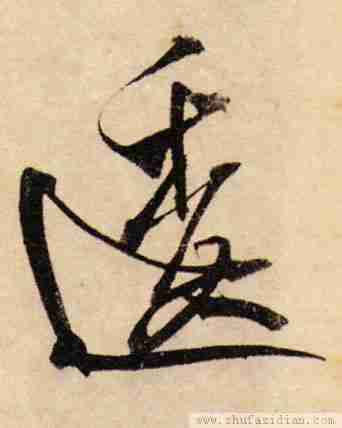 逶
www.shufazidian.com